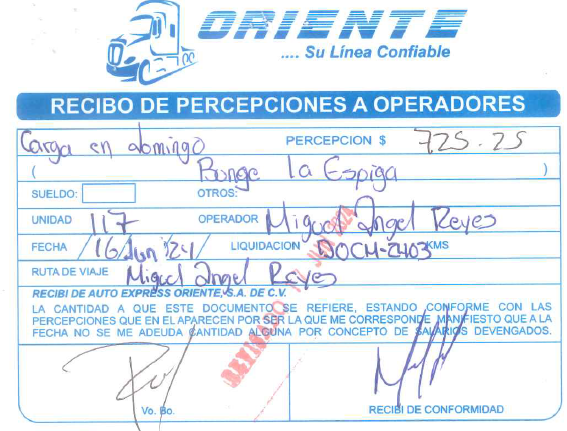 ORIENTE
.... Su Línea Confiable
RECIBO DE PERCEPCIONES A OPERADORES
Carga en domingo PERCEPCION $ 725.25
( Bunge La Espiga )
SUELDO: OTROS:
UNIDAD 117 OPERADOR Miguel Angel Reyes
FECHA 16/Jun/24/ LIQUIDACION DOCM-2403 KMS
RUTA DE VIAJE Miguel Angel Reyes
RECIBI DE AUTO EXPRESS ORIENTE, S.A. DE C.V.
LA CANTIDAD A QUE ESTE DOCUMENTO SE REFIERE, ESTANDO CONFORME CON LAS
PERCEPCIONES QUE EN EL APARECEN POR SER LA QUE ME CORRESPONDE MANIFIESTO QUE A LA
FECHA NO SE ME ADEUDA CANTIDAD ALGUNA POR CONCEPTO DE SALARIOS DEVENGADOS.
REVISADO 17 JUN 2024
Vo. Bo. RECIBI DE CONFORMIDAD